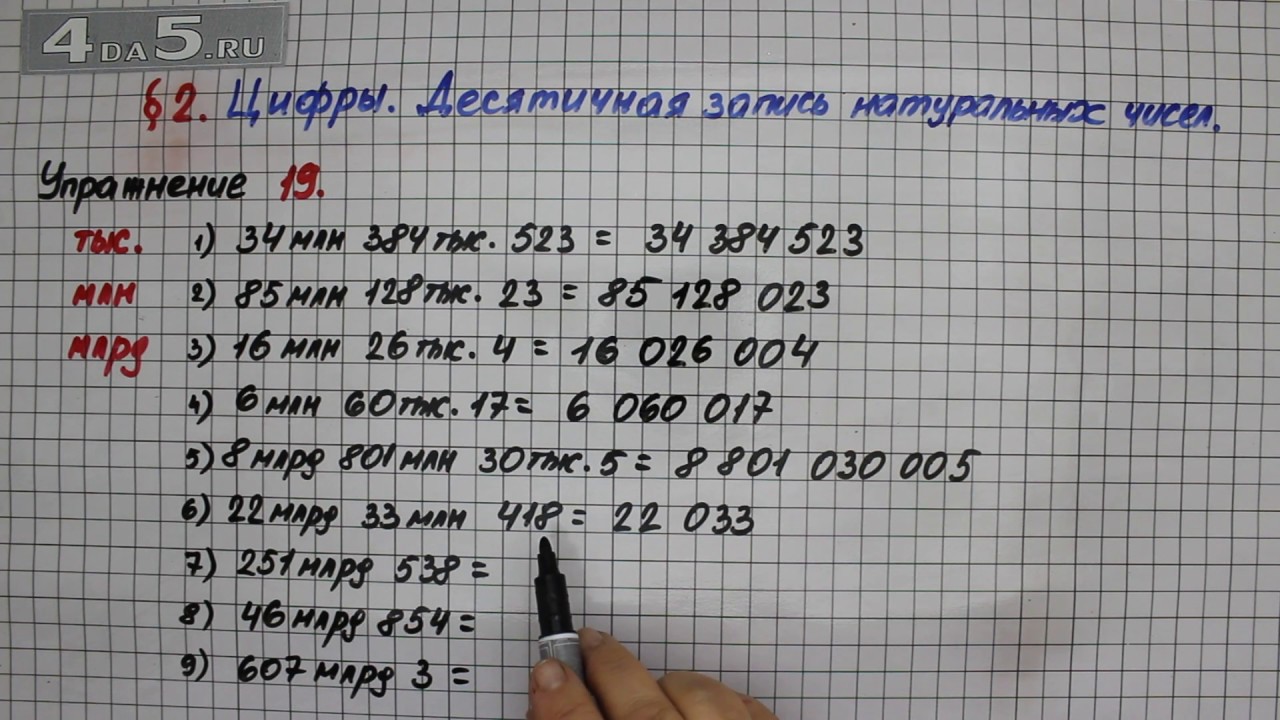 4DA5.RU
§2. Цифры. Десятичная запись натуральных чисел.
Упражнение 19.
тыс. 1) 34 млн 384 тыс. 523 = 34 384 523
млн 2) 85 млн 128 тыс. 23 = 85 128 023
млрд 3) 16 млн 26 тыс. 4 = 16 026 004
4) 6 млн 60 тыс. 17 = 6 060 017
5) 8 млрд 801 млн 30 тыс. 5 = 8 801 030 005
6) 22 млрд 33 млн 418 = 22 033
7) 251 млрд 538 =
8) 46 млрд 854 =
9) 607 млрд 3 =